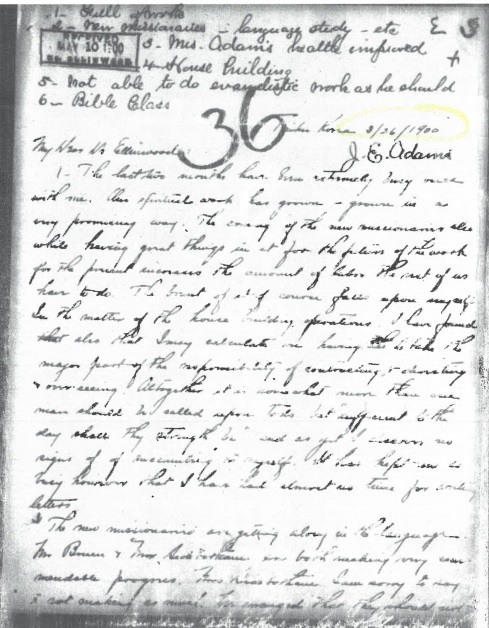 1 - Full of work
2 - New missionaries - language study - etc E 3
RECEIVED
MAY 10 1900
DR. ELLINWOOD
3 - Mrs. Adams health improved +
4 - House Building
5 - Not able to do evangelistic work as he should
6 - Bible Class
36
Korea 3/26/1900
J. E. Adams
My Dear Dr Ellinwood:
1 - The last two months have been extremely busy ones
with me. Our spiritual work has grown - grown in a
very promising way. The coming of the new missionaries also
while having great things in it for the future of the work
for the present increases the amount of labor the rest of us
have to do. The brunt of it of course falls upon myself.
In the matter of the house building operations I have found
that also that I may calculate on having to take the
major part of the responsibility of contracting, &
overseeing. Altogether it is somewhat more than one
man should be called upon to do but "sufficient to the
day shall thy strength be" and as yet I discern no
signs of of succumbing in myself. It has kept me so
busy however that I have had almost no time for
letters
The new missionaries are getting along in the language
Mr Bruen & are both making very com-
mendable progress. I am sorry to say
is not making as much. I'm that they should not